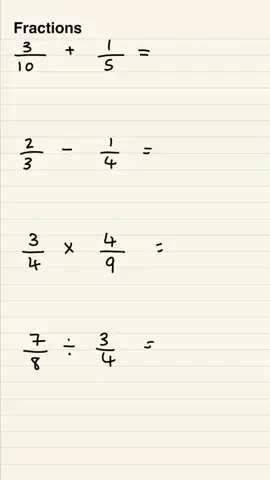 Fractions
3/10 + 1/5 =
2/3 - 1/4 =
3/4 × 4/9 =
7/8 ÷ 3/4 =